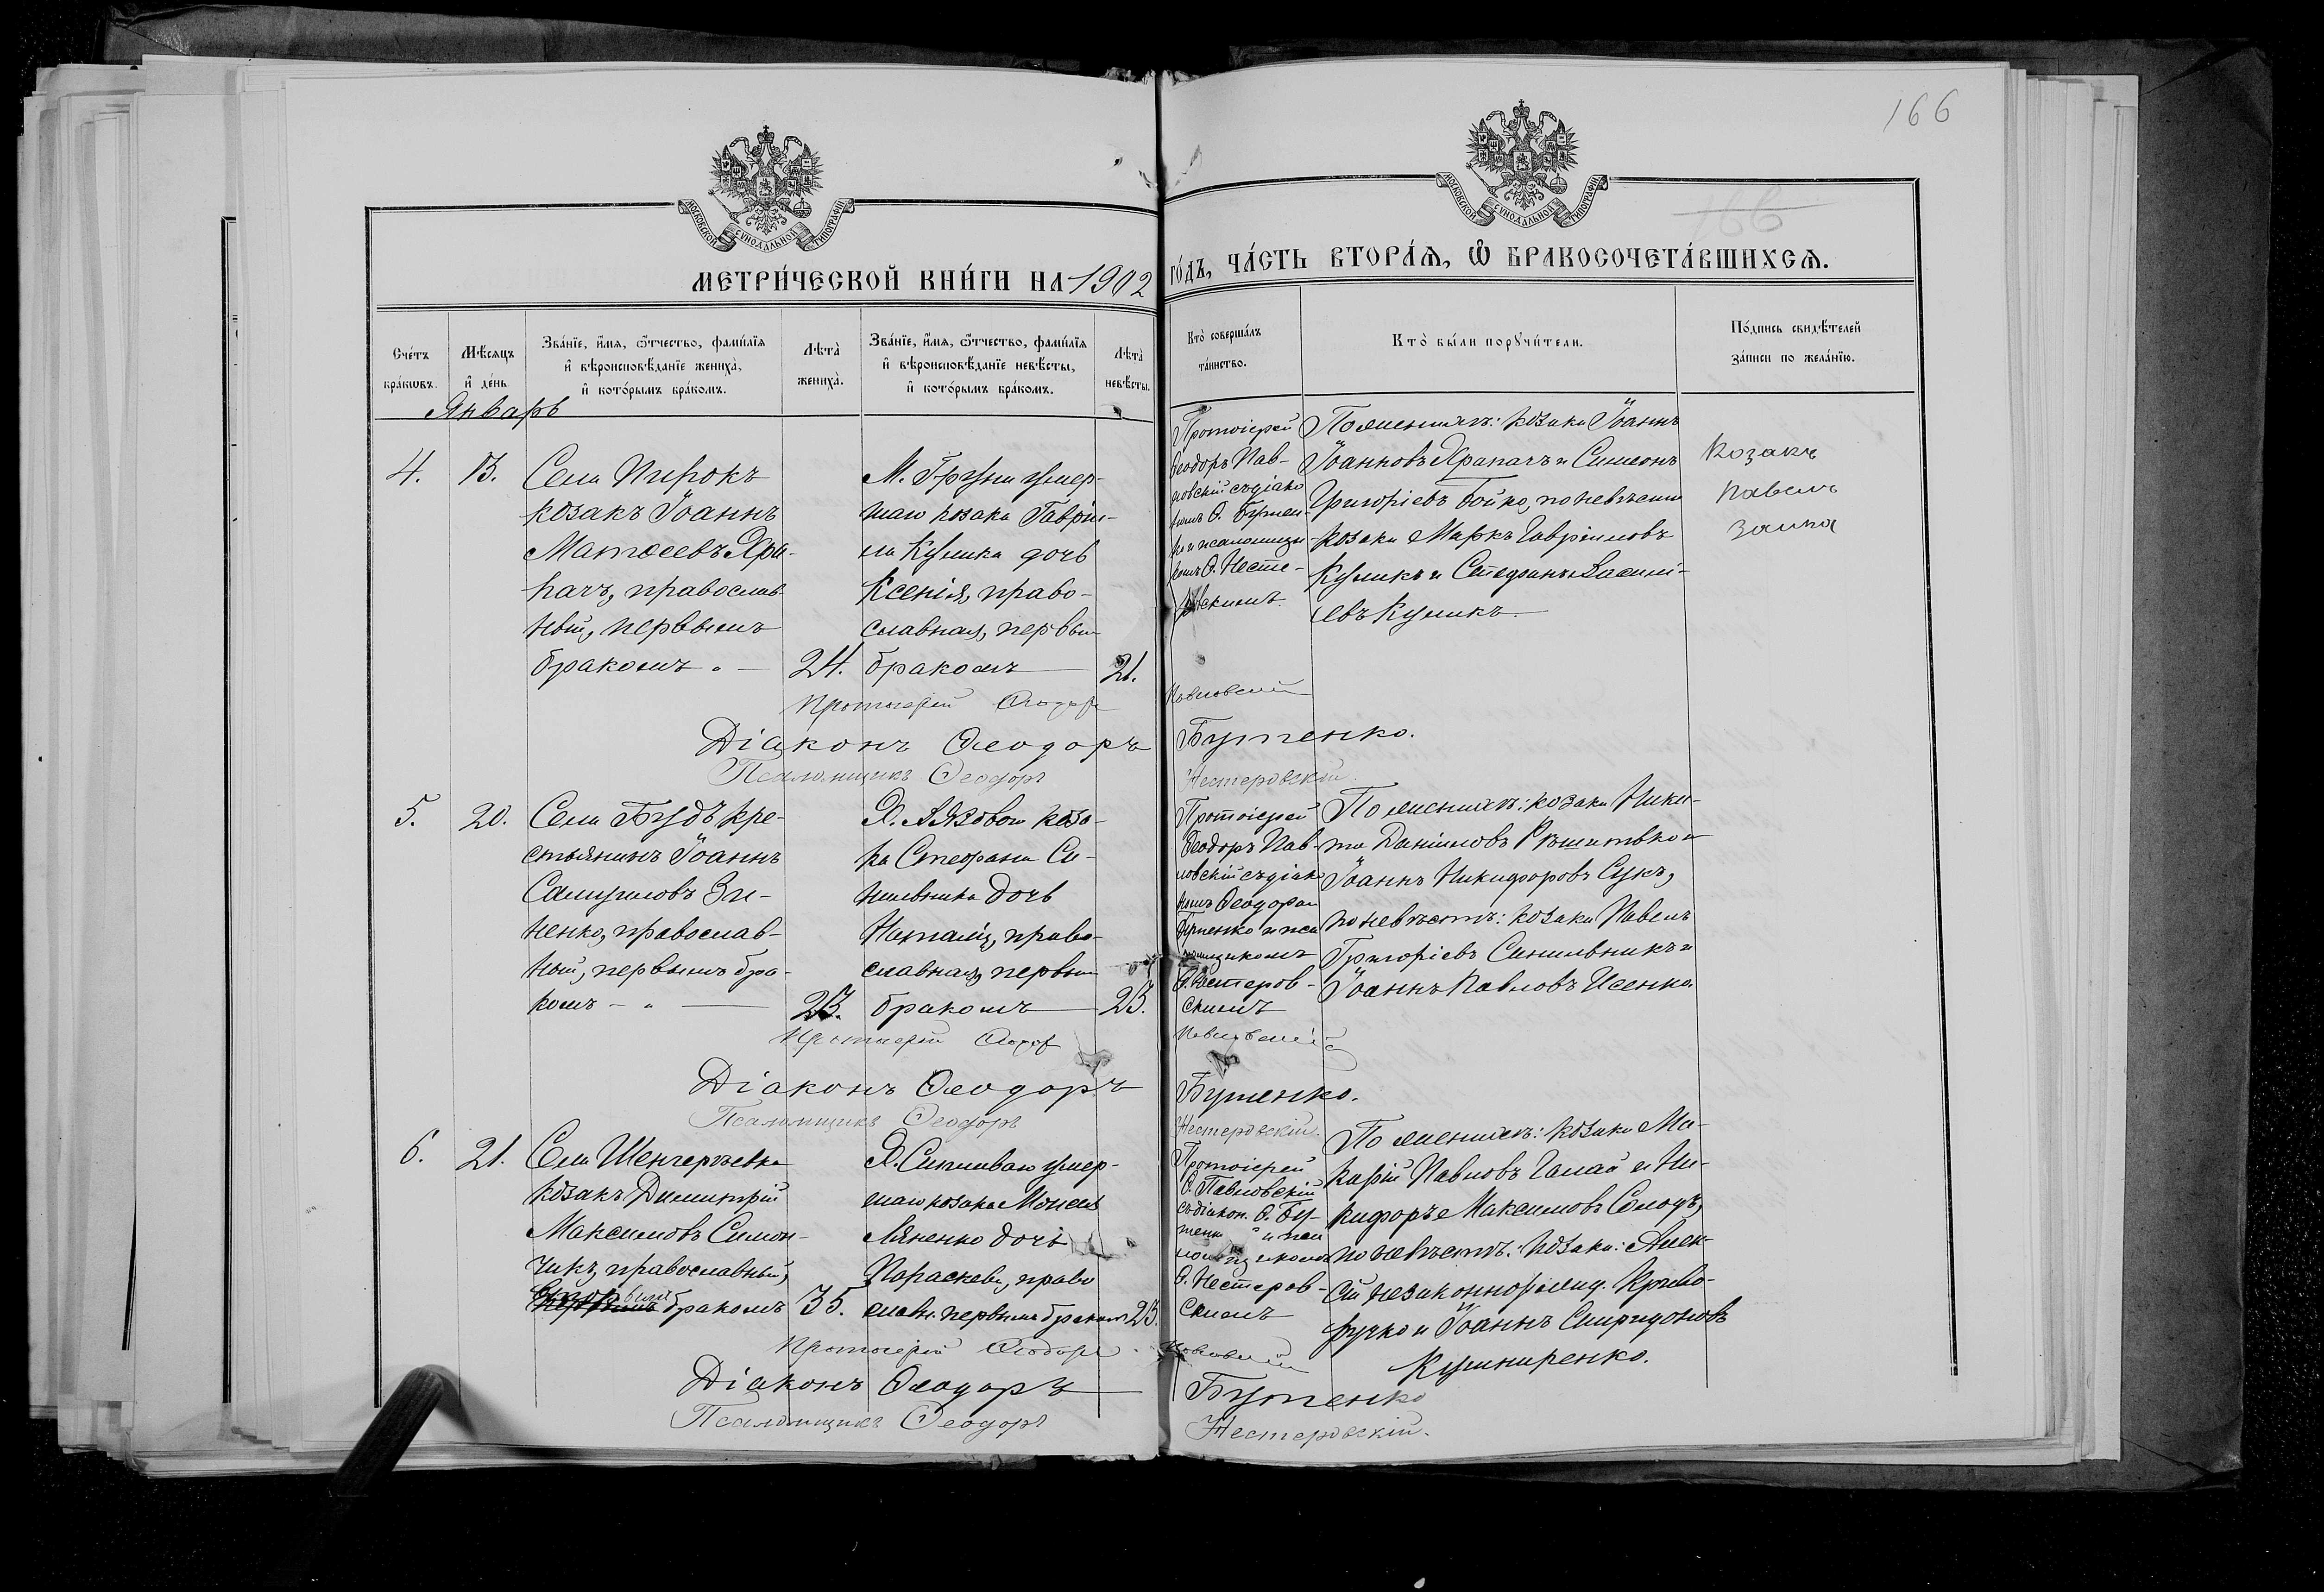 166
МОСКОВСКОЙ СѴНОДАЛЬНОЙ ТИПОГРАФІИ
МОСКОВСКОЙ СѴНОДАЛЬНОЙ ТИПОГРАФІИ
166
МЕТРИ́ЧЕСКОЙ КНИ́ГИ НА 1902 ГО́ДЪ, ЧА́СТЬ ВТОРА́Ѧ, Ѡ БРАКОСОЧЕТА́ВШИХСѦ.
Сче́тъ бра́кѡвъ.
Мѣ́сѧцъ и҆ де́нь
Зва́нїе, и҆́мѧ, ѻ҆́тчество, фами́лїѧ и҆ вѣроисповѣ́данїе жениха̀, и҆ кото́рымъ бра́комъ.
Лѣта̀ жениха̀.
Зва́нїе, и҆́мѧ, ѻ҆́тчество, фами́лїѧ и҆ вѣроисповѣ́данїе невѣ́сты, и҆ кото́рымъ бра́комъ.
Лѣта̀ невѣ́сты.
Кто̀ соверша́лъ та́инство.
Кто̀ бы́ли порꙋчи́тели.
По́дпись свидѣ́телей за́писи по жела́нїю.
Январь
4.
13.
Села Пирокъ
козакъ Іоаннъ
Матѳеевъ Хра-
пачъ, православ
ный, первымъ
бракомъ
24.
М. Груни умер-
шаго козака Гаврiи-
ла Кулика дочь
Ксенія, право-
славная, первым
бракомъ
21.
Протоіерей
Ѳеодоръ Пав-
ловскій съ діако
номъ Ѳ. Бутен-
ко и псаломщи
комъ Ѳ. Несте-
ровскимъ.
По женихѣ: козаки Іоаннъ
Іоанновъ Храпачъ и Симеонъ
Григоріевъ Бойко, по невѣстѣ
козаки Маркъ Гавріиловъ
Куликъ и Стефанъ Василі-
евъ Куликъ.
Козакъ
Павелъ
Заика
Протоіерей Ѳеодоръ Павловскій
Діаконъ Ѳеодоръ Бутенко.
Псаломщикъ Ѳеодоръ Нестеровскій.
5.
20.
Села Будъ кре-
стьянинъ Іоаннъ
Самуиловъ Зи-
ненко, православ-
ный, первымъ бра-
комъ
23.
Х. Лязовой коза-
ка Стефана Си-
нильника дочь
Наталія, право-
славная, первым
бракомъ
23.
Протоіерей
Ѳеодоръ Пав-
ловскій съ діако
номъ Ѳеодором
Бутенко и пса
ломщикомъ
Ѳ. Нестеров-
скимъ
По женихѣ: козаки Ники-
та Даніиловъ Рѣшитько и
Іоаннъ Никифоровъ Сукъ,
по невѣстѣ: козаки Павелъ
Григоріевъ Синильникъ и
Іоаннъ Павловъ Исенко.
Протоіерей Ѳеодоръ Павловскій
Діаконъ Ѳеодоръ Бутенко.
Псаломщикъ Ѳеодоръ Нестеровскій.
6.
21.
Села Шенгерѣевки
козакъ Димитрій
Максимовъ Симон-
чикъ, православный,
вторымъ бракомъ
35.
умер-
шаго козака Моисея
Ляненко дочь
Параскева, право
славн. первымъ бракомъ
23.
Протоіерей
Ѳ. Павловскій
съ діакон. Ѳ. Бу-
тенко и пса
ломщикомъ
Ѳ. Нестеров-
скимъ
По женихѣ: козаки Ма-
карій Павловъ Галай и Ни-
кифоръ Максимовъ Солодъ,
по невѣстѣ: козаки: Алек-
сій незаконнорожд. Криво-
ручко и Іоаннъ Спиридоновъ
Кушниренко.
Протоіерей Ѳеодоръ Павловскій
Діаконъ Ѳеодоръ Бутенко
Псаломщикъ Ѳеодоръ Нестеровскій.